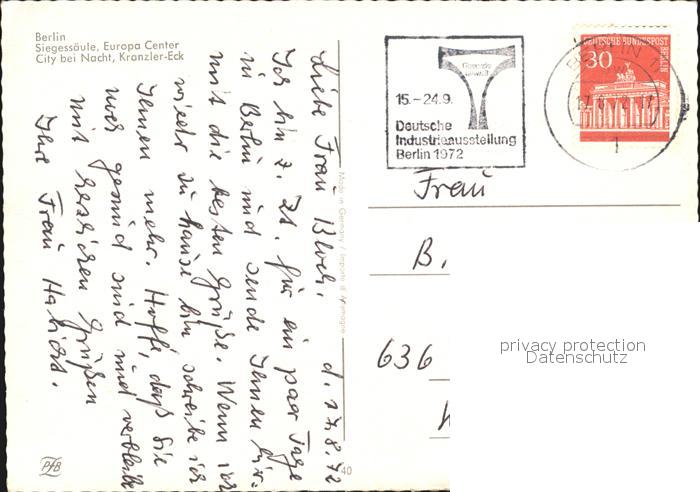 Berlin
Siegessäule, Europa Center
City bei Nacht, Kranzler-Eck
Liebe Frau Bloch. d. 17.8.72
Ich bin z. Zt. für ein paar Tage
in Berlin und sende Ihnen hier-
mit die besten Grüße. Wenn ich
wieder zu hause bin schreibe ich
Ihnen mehr. Hoffe, daß Sie
wer gesund sind und verbleibe
mit herzlichen Grüßen
Ihre Frau
Made in Germany / Importé d'Allemagne
PfB
40
15.-24.9.
Deutsche
Industrieausstellung
Berlin 1972
DEUTSCHE BUNDESPOST
BERLIN
30
BERLIN 11
1
Frau
B.
636
privacy protection
Datenschutz